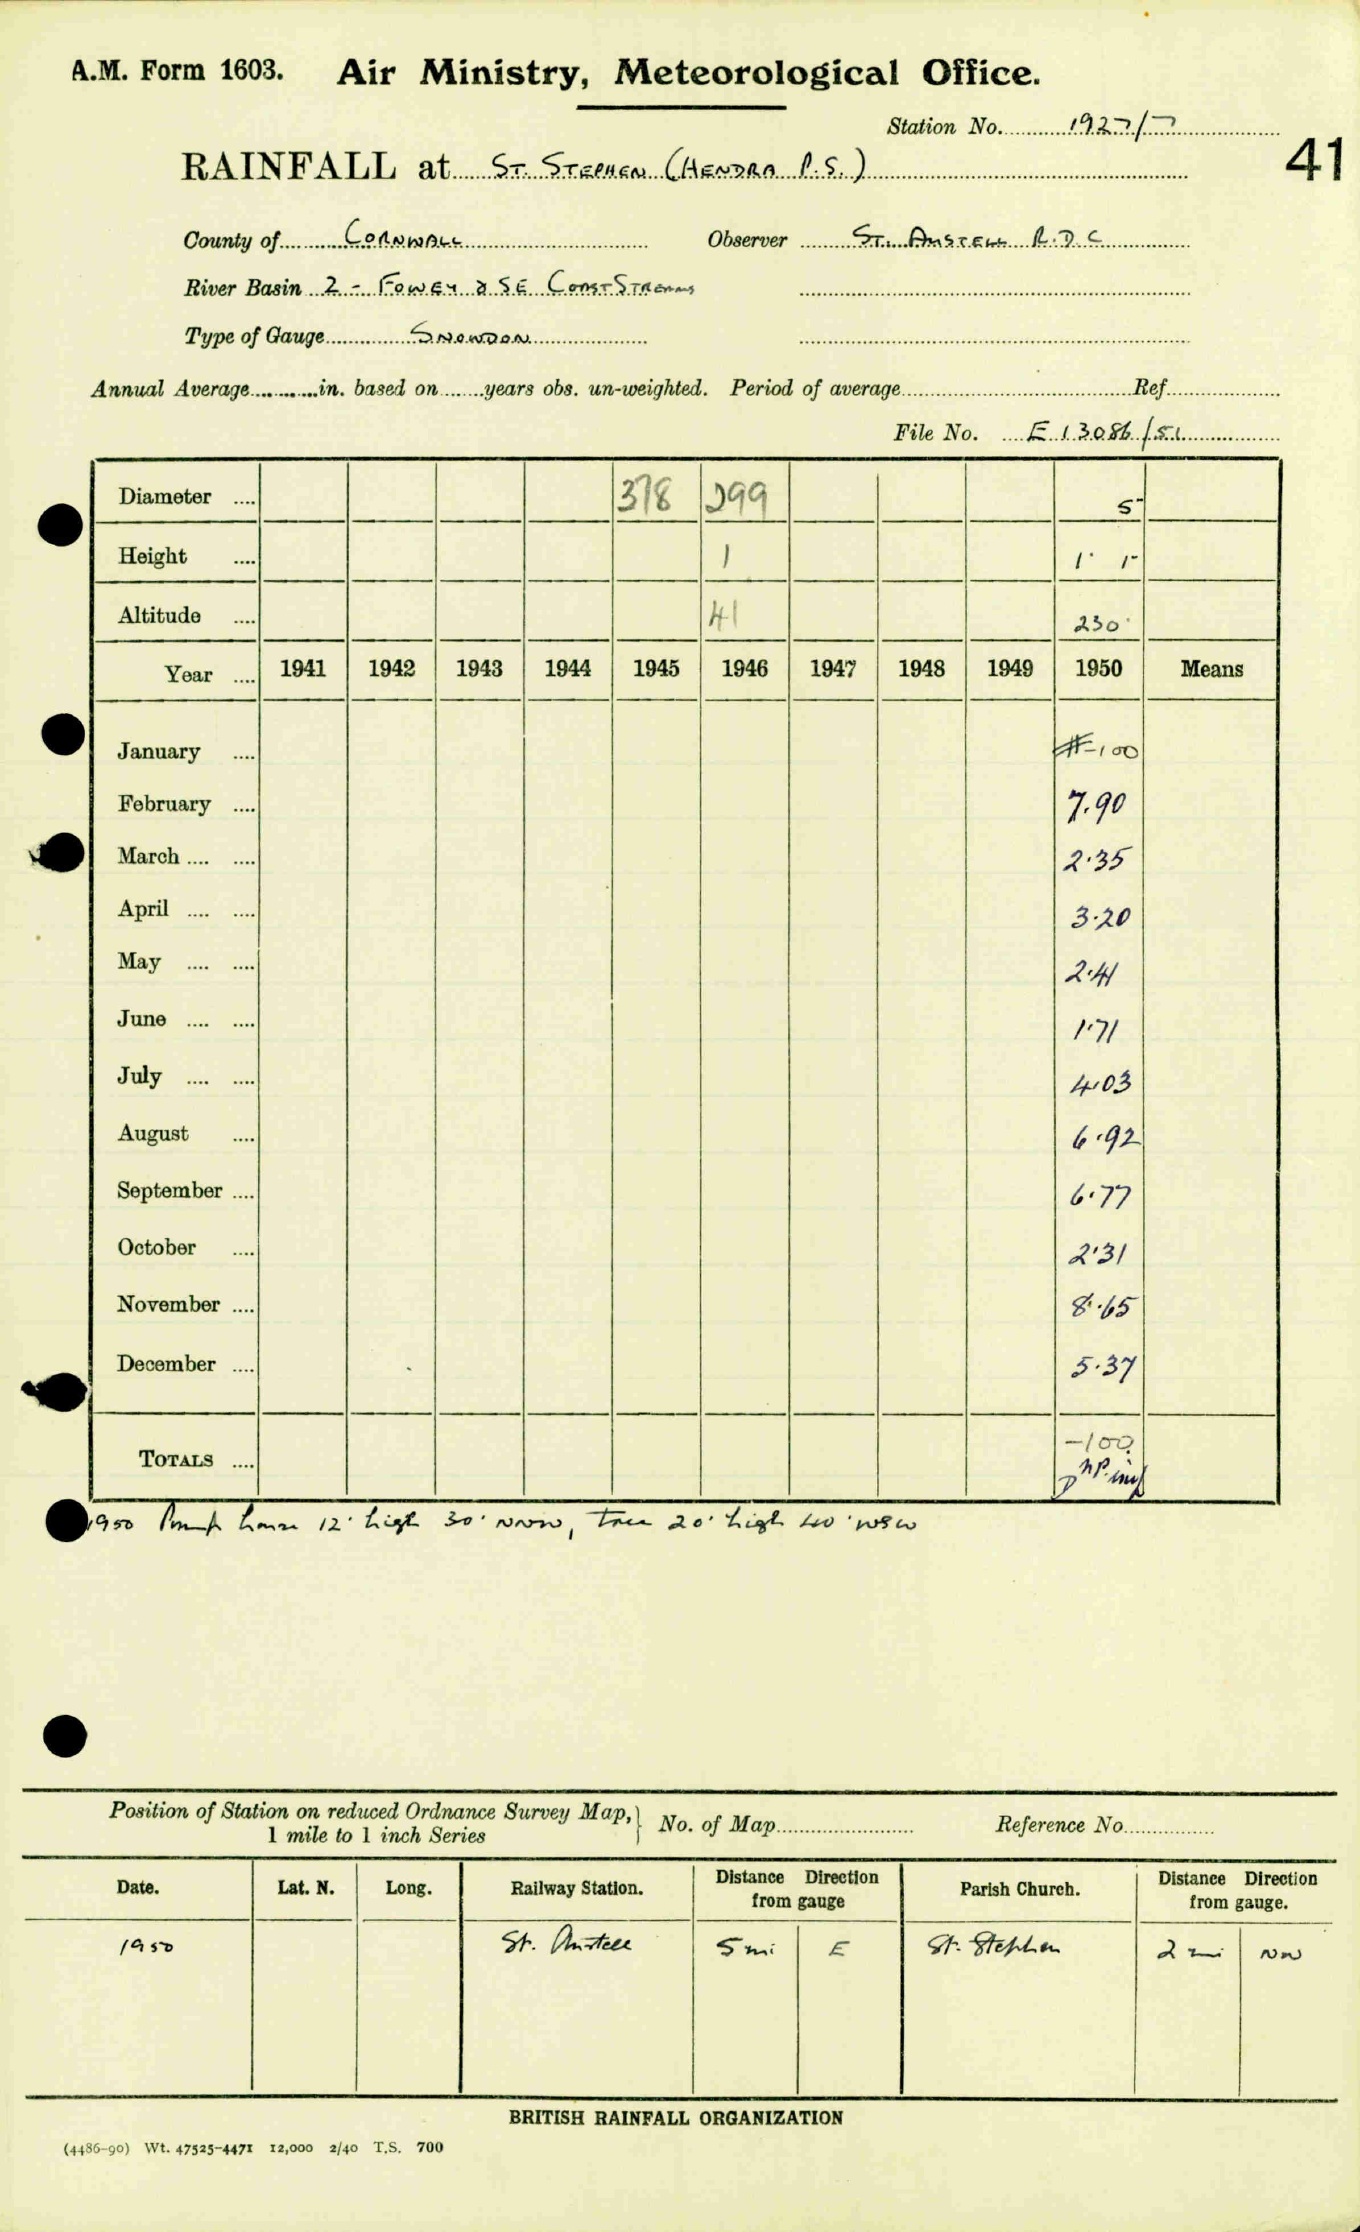 A.M. Form 1603. Air Ministry, Meteorological Office.
Station No. 1927/7
41
RAINFALL at St. Stephen (Hendra P.S.)
County of Cornwall Observer St. Austell R.D.C
River Basin 2 - Fowey & SE Coast Streams
Type of Gauge Snowdon
Annual Average in. based on years obs. un-weighted. Period of average Ref.
File No. E 13086/51
Diameter 378 299 5"
Height 1 1' 1"
Altitude 41 230'
Year 1941 1942 1943 1944 1945 1946 1947 1948 1949 1950 Means
January -100
February 7.90
March 2.35
April 3.20
May 2.41
June 1.71
July 4.03
August 6.92
September 6.77
October 2.31
November 8.65
December 5.37
-100
TOTALS
1950 Pump house 12' high 30' NNW, tree 20' high 40' WSW
Position of Station on reduced Ordnance Survey Map,
1 mile to 1 inch Series
No. of Map Reference No.
Date. Lat. N. Long. Railway Station. Distance Direction from gauge Parish Church. Distance Direction from gauge.
1950 St. Austell 5 mi E St. Stephen 2 mi NW
BRITISH RAINFALL ORGANIZATION
(4486-90) Wt. 47525-4471 12,000 2/40 T.S. 700